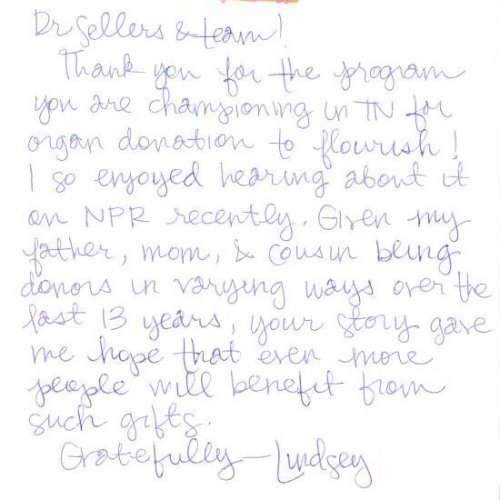 Dr Sellers & team!
Thank you for the program
you are championing in TN for
organ donation to flourish!
I so enjoyed hearing about it
on NPR recently. Given my
father, mom, & cousin being
donors in varying ways over the
last 13 years, your story gave
me hope that even more
people will benefit from
such gifts.
Gratefully - Lindsey